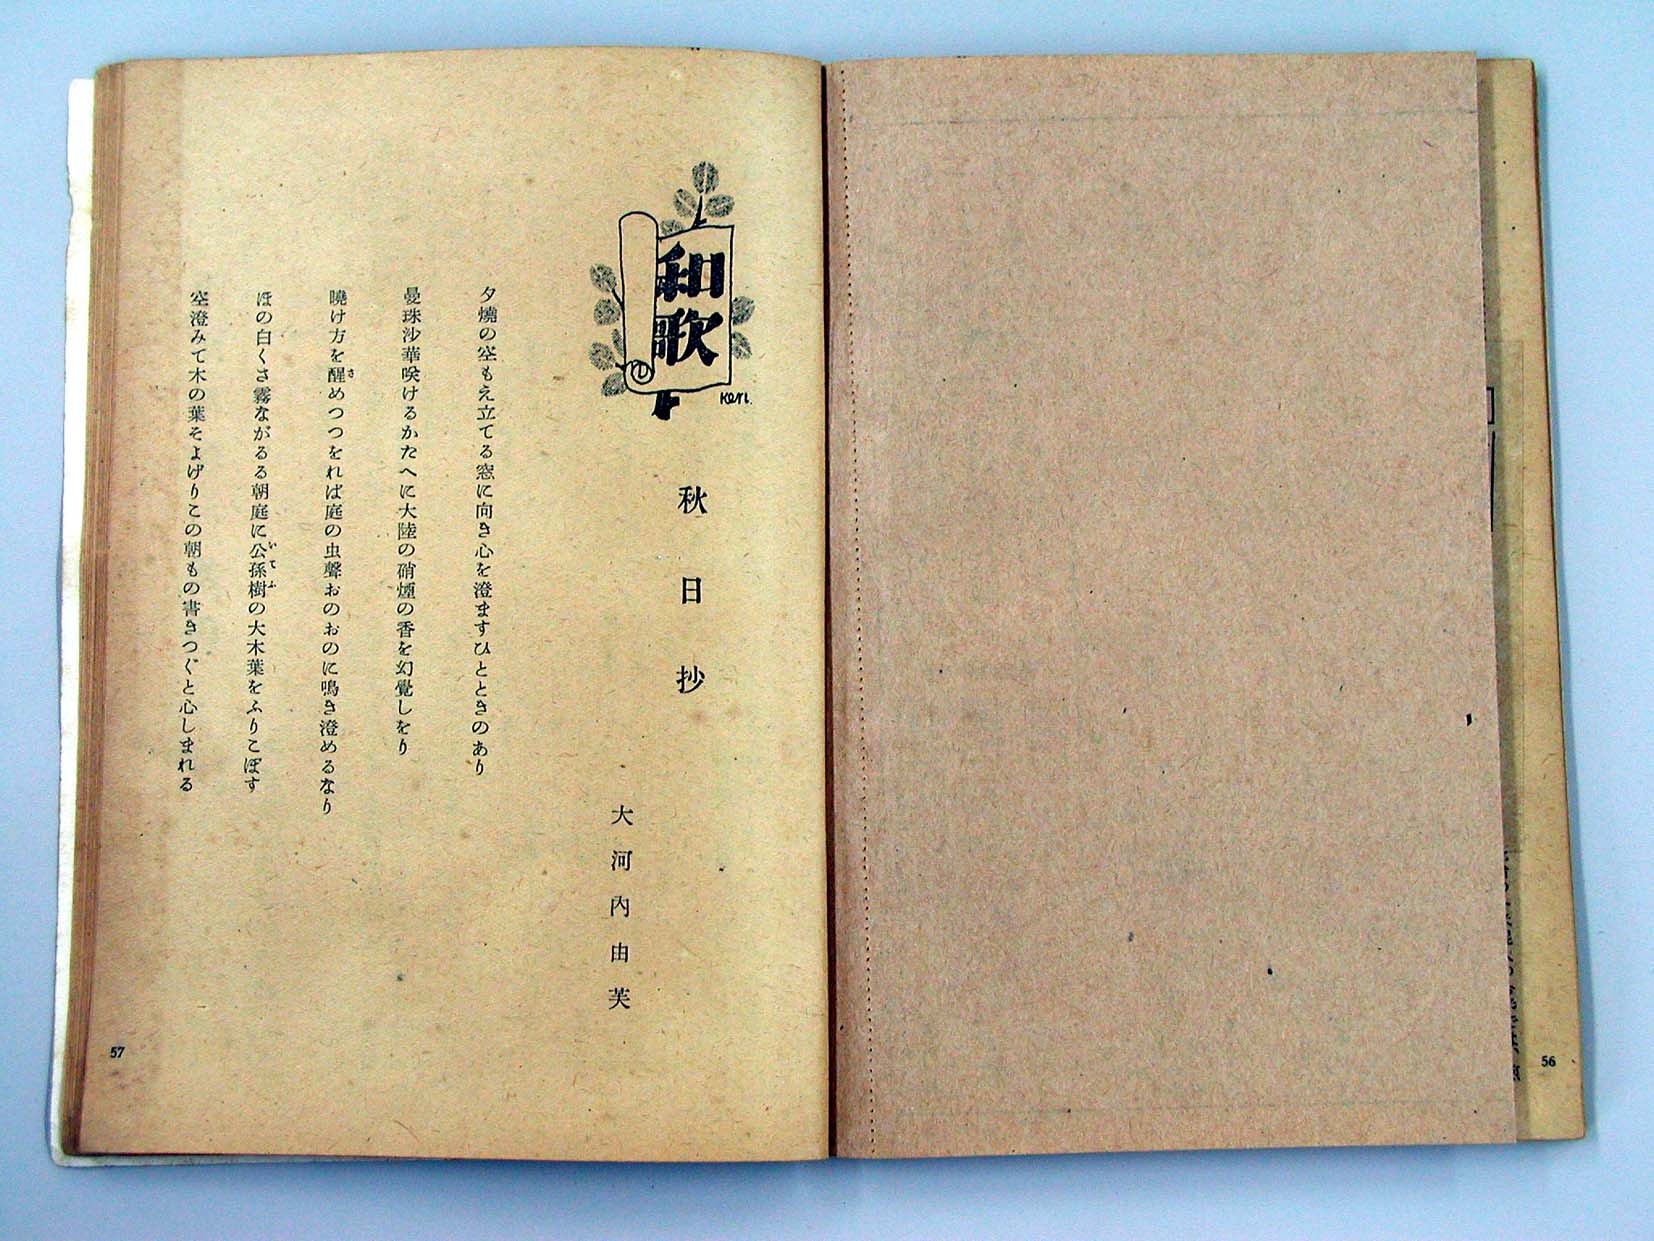 56
和歌
Ken.
秋日抄
大河內由芙
夕燒の空もえ立てる窓に向き心を澄ますひとときのあり
曼珠沙華咲けるかたへに大陸の硝煙の香を幻覺しをり
曉け方を醒めつつをれば庭の虫聲おのおのに鳴き澄めるなり
さ
ほの白くさ霧ながるる朝庭に公孫樹の大木葉をふりこぼす
いてふ
空澄みて木の葉そよげりこの朝もの書きつぐと心しまれる
57